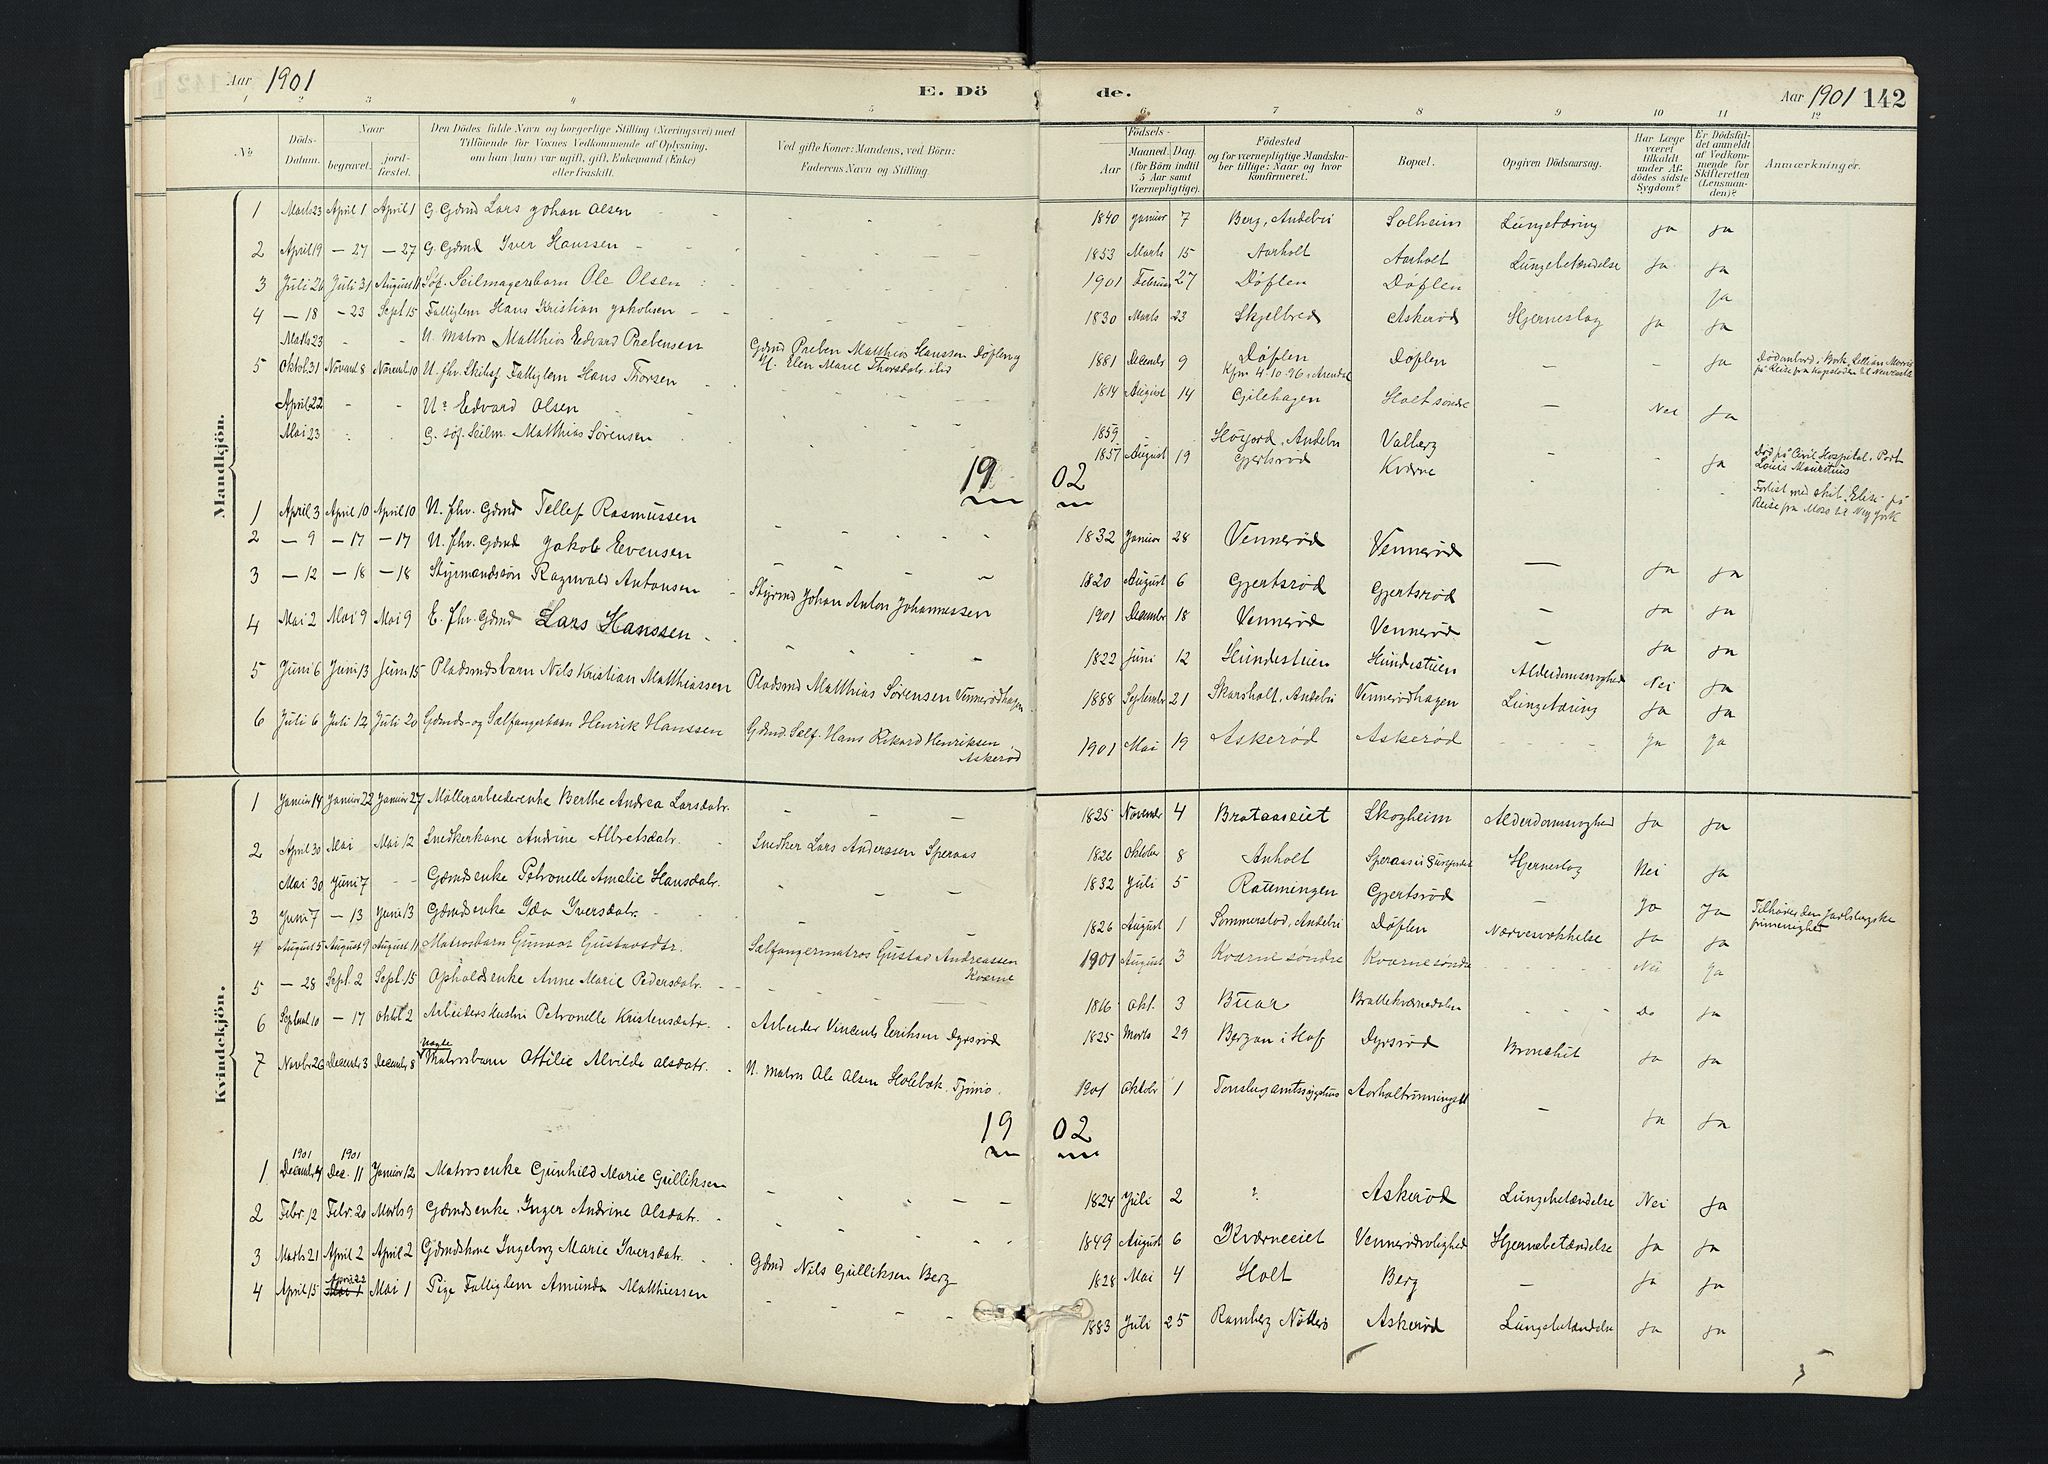 Aar 1901 E. Dö de. Aar 1901 142
1 2 3 4 5 6 7 8 9 10 11 12
No Döds-Datum. Naar begravet. jord-fæstet. Den Dödes fulde Navn og borgerlige Stilling (Næringsvei) med Tilföiende for Voxnes Vedkommende af Oplysning, om han (hun) var ugift, gift, Enkemand (Enke) eller fraskilt. Ved gifte Koner: Mandens, ved Börn: Faderens Navn og Stilling. Födsels- Aar Maaned. Dag. (for Börn indtil 5 Aar samt Værnepligtige). Födested og for værnepligtige Mandskaber tillige: Naar og hvor konfirmeret. Bopæl. Opgiven Dödsaarsag. Har Læge været tilkaldt under Afdödes sidste Sygdom? Er Dödsfaldet anmeldt af Vedkommende for Skifteretten (Lensmanden)? Anmærkninger.
Mandkjön.
1 Marts 23 April 1 April 1 G. Gdmd Lars Johan Olsen 1840 Januar 7 Berg, Andebu Solheim Lungetæring Ja Ja
2 April 19 — 27 — 27 G. Gdmd Iver Hanssen 1853 Marts 15 Aarholt Aarholt Lungebetændelse Ja Ja
3 Juli 26 Juli 31 August 11 Søf. Seilmagersbarn Ole Olsen 1901 Februar 27 Døflen Døflen Ja
4 — 18 — 23 Sept 15 Fattiglem Hans Kristian Jakobsen 1830 Marts 23 Skjelbred Askerød Hjerneslag Ja Ja
Marts 23 — U. Matros Matthias Edvard Prebensen Gdmd Preben Matthias Hanssen Døfleng H. Elen Marie Thorsdatr. 1881 December 9 Døflen Kfm 4.10.96 i Arendal Døflen — — Ja
5 Oktob. 31 Novemb 8 Novemb 10 U. fhv. Skibsf. Fattiglem Hans Thorsen 1814 August 14 Gilehagen Holt søndre — Nei Ja
April 22 U? Edvard Olsen 1859 Høijord, Andebu Valberg
Mai 23 G. søf. Seilm. Matthias Sørensen 1857 August 19 Gjertsrød Kværne Ja Død på Civil Hospital, Port Louis Mauritius
Forlist med skib "Elise" på Reise fra Moss til New York
1902
1 April 3 April 10 April 10 U. fhv. Gdmd Tellef Rasmussen 1832 Januar 28 Vennerød Vennerød — Ja Ja
2 — 9 — 17 — 17 U. fhv. Gdmd Jakob Evensen 1820 August 6 Gjertsrød Gjertsrød — Ja Ja
3 — 12 — 18 — 18 Styrmandssøn Ragnvald Antonsen Styrmd Johan Anton Johannessen 1901 December 18 Vennerød Vennerød — Ja Ja
4 Mai 2 Mai 9 Mai 9 E. fhv. Gdmd Lars Hanssen 1822 Juni 12 Hundestuen Hundestuen Alderdomssvaghed Nei Ja
5 Juni 6 Juni 13 Juni 15 Pladsmdsbarn Nils Kristian Matthiassen Pladsmd Matthias Sørensen Vennerødhagen 1888 September 21 Skarsholt, Andebu Vennerødhagen Lungetæring Ja Ja
6 Juli 6 Juli 12 Juli 20 Gdmds- og Sælfangerbarn Henrik Hanssen Gdmd. Self. Hans Rikard Henriksen, Askerød 1901 Mai 19 Askerød Askerød Ja Ja
Kvindekjön.
1 Januar 14 Januar 22 Januar 27 Møllerarbeiderenke Berthe Andrea Larsdatr. 1825 November 4 Brataaseiet Skogheim Alderdomssvaghed Ja Ja
2 April 30 Mai Mai 12 Snedkerkone Andrine Albretsdatr. Snedker Lars Anderssen Speraas 1826 Oktober 8 Anholt Hjerneslag Nei Ja
Mai 30 Juni 7 Gdmdsenke Petronelle Amalie Hansdatr. 1832 Juli 5 Gjertsrød — Ja Ja Tilhører den Jarlsbergske frimenighet
3 Juni 7 — 13 Juni 13 Gdmdsenke Ida Iversdatr. 1826 August 1 Sommerstad, Andebu Døflen Nærvesvækkelse Ja Ja
4 August 5 August 9 August 11 Matrosbarn Gunvor Gustavsdtr. Sælfangermatros Gustav Andreassen Kværne 1901 August 3 Kværne søndre Kværne søndre Nei Ja
5 — 28 Sept. 2 Sept. 15 Opholdsenke Anne Marie Pedersdatr. 1816 Okt. 3 Buar Do Ja
6 Septemb 10 — 17 Oktob 2 Arbeiders Hustru Petronelle Kristensdatr. Arbeider Vincents Eriksen Dyrsrød 1825 Marts 29 Bergan i Hof Dyrsrød Bronchit Ja Ja
7 Novbr 26 December 3 December 8 Uægte Matrosbarn Ottilie Alvilde Olsdatr. U. Matros Ole Olsen Holebæk. Tjømø. 1901 Oktobr 1 Tønsberg amtssygehus — Ja Ja
1902
1 1901 December 4 1901 Dec. 11 Januar 12 Matrosenke Gunhild Marie Gulliksen 1824 Juli 2 ? Askerød Lungebetændelse Nei Ja
2 Febr. 12 Febr. 20 Marts 9 Gdmdsenke Inger Andrine Olsdatr. 1849 August 6 Kværneeiet Vennerødbolighed Hjernebetændelse Ja Ja
3 Marts 21 April 2 April 2 Gdmdskone Ingeborg Marie Iversdatr. Gdmd Nils Gulliksen Berg 1828 Mai 4 Holt Berg — Ja Ja
4 April 15 April 22 Mai 1 Pige Fattiglem Amunda Matthiessen 1883 Juli 25 Ramberg Nøtterø Askerød Lungebetændelse Ja Ja